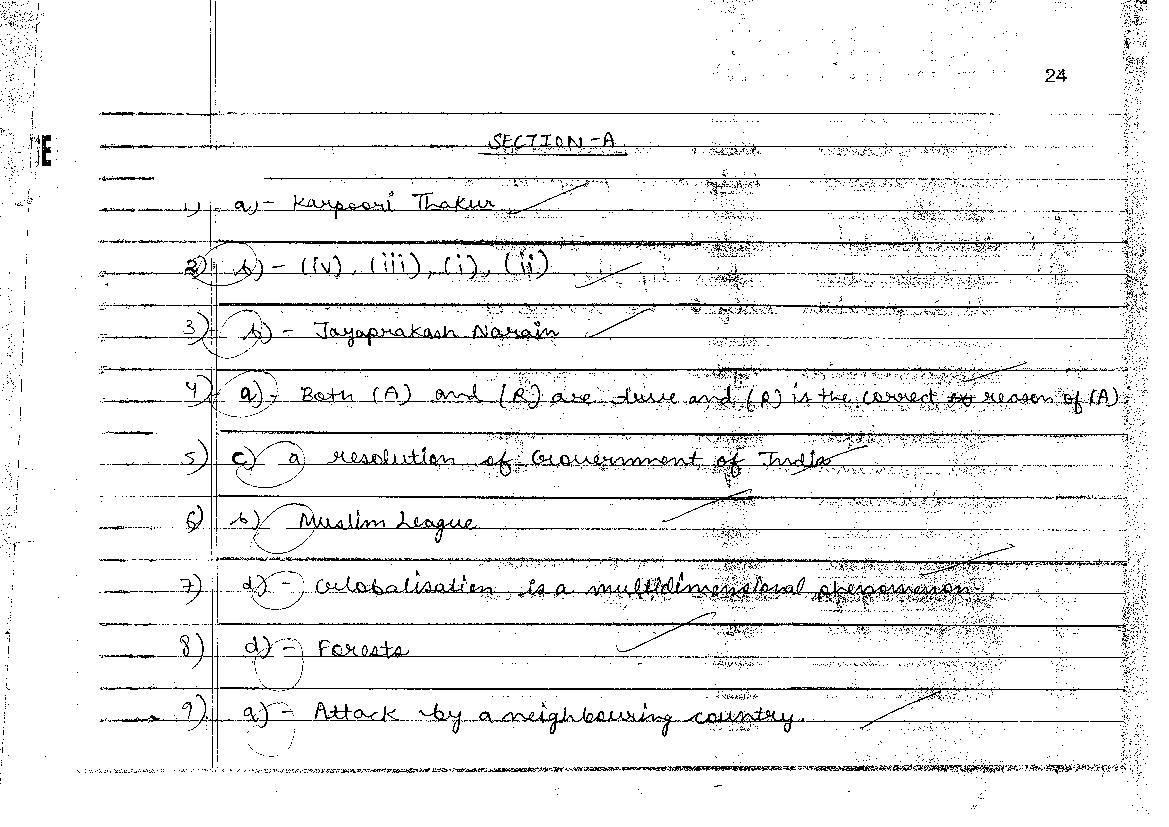 24
E
SECTION-A
1) a)- Karpoori Thakur
2) b) - (iv), (iii), (i), (ii)
3) b) - Jayaprakash Narain
4) a)- Both (A) and (R) are true and (R) is the correct reason of (A).
5) c) a resolution of Government of India
6) b) Muslim League
7) d) - Globalisation is a multidimensional phenomenon.
8) d) - Forests
9) a) - Attack by a neighbouring country.